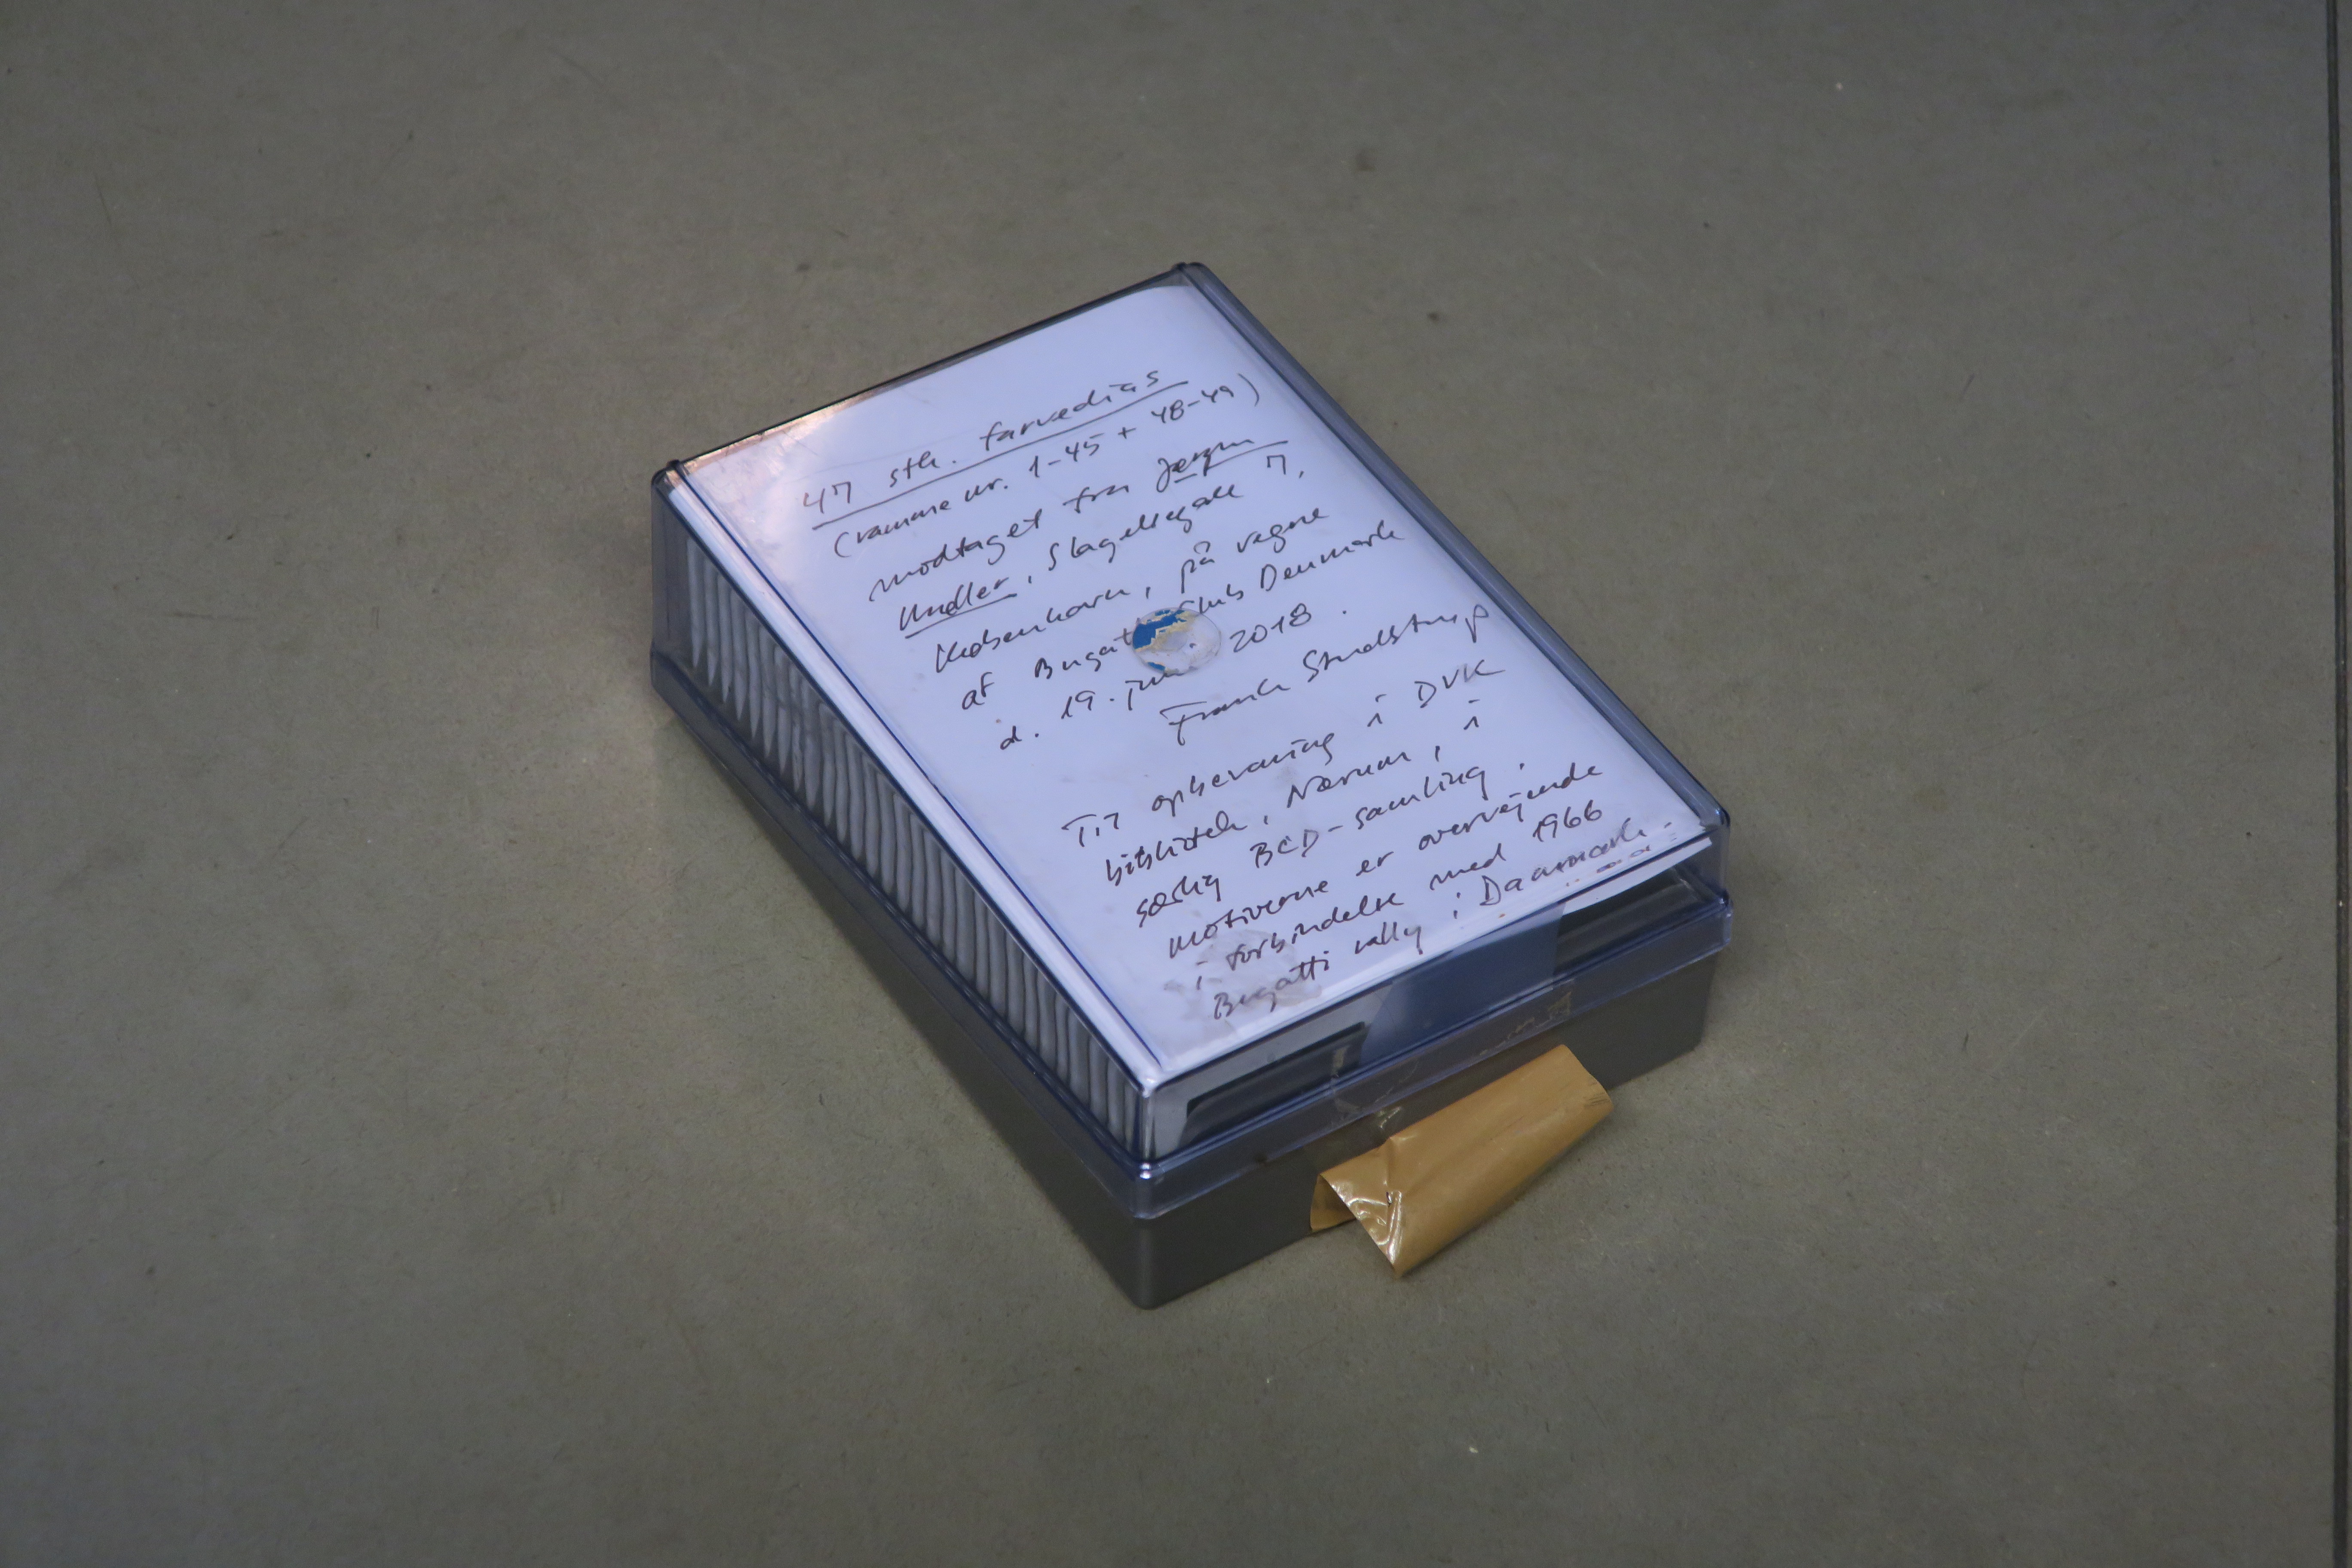 47 stk. farvedias
(ramme nr. 1-45 + 48-49)
modtaget fra Jørgen
Møller, Slagelsegade 7,
København, på vegne
af Bugatti Club Denmark
d. 19. 2018.
Frank Studstrup
Til opbevaring i DVK
bibliotek, Nærum, i
særlig BCD-samling.
Motiverne er overvejende
i forbindelse med 1966
Bugatti rally i Danmark